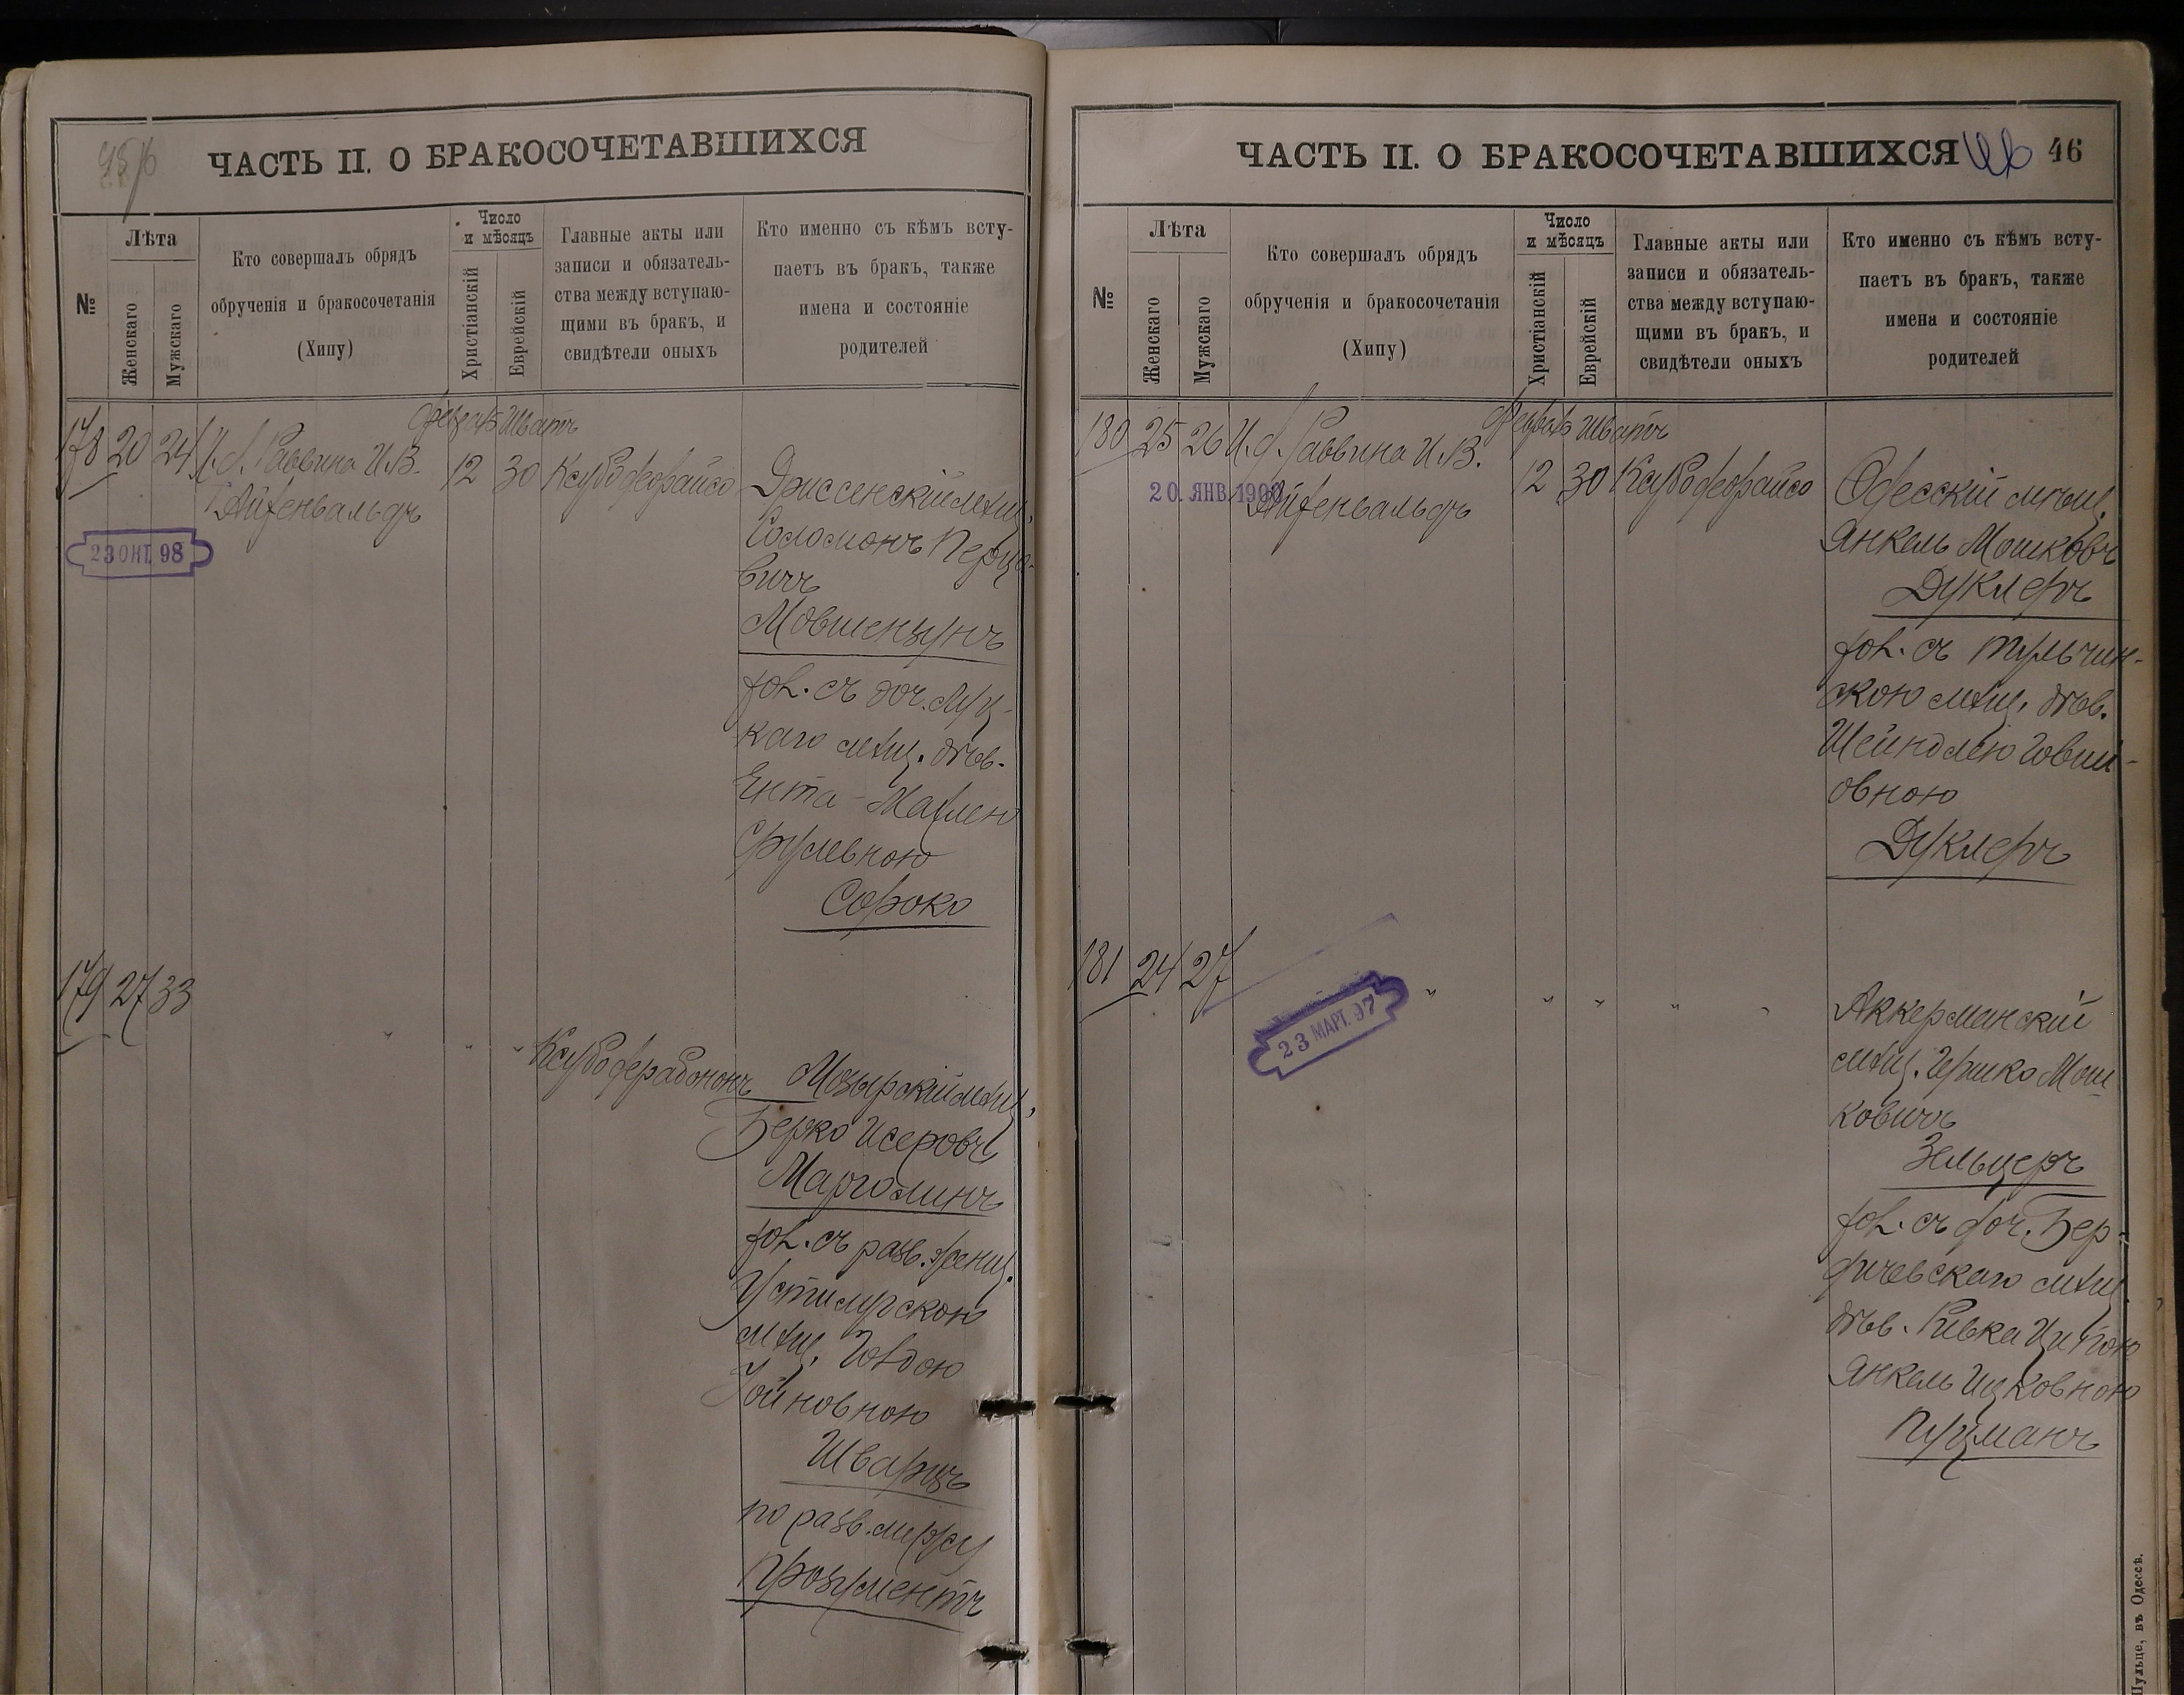 ЧАСТЬ II. О БРАКОСОЧЕТАВШИХСЯ
№
Лѣта
Женскаго
Мужскаго
Кто совершалъ обрядъ
обрученія и бракосочетанія
(Хипу)
Число
и мѣсяцъ
Христіанскій
Еврейскій
Главные акты или
записи и обязатель-
ства между вступаю-
щими въ бракъ, и
свидѣтели оныхъ
Кто именно съ кѣмъ всту-
паетъ въ бракъ, также
имена и состояніе
родителей
178 20 24 И.д. Раввина И.В.
Айзенвальдъ
23 ОКТ. 98
Шватъ
12 30
Дриссенскій мѣщ.
Соломонъ Перцо-
вичъ
Мовшензунъ
хол. съ доч. Луц-
каго мѣщ. дѣв.
Ента-Маѣлею
Срулевною
Сороко
179 27 33
" " "
Мозырскій мѣщ.
Берко Исеровъ
Марголинъ
хол. съ разв. жениц.
Устилугскою
мѣщ. Говдою
Гойновною
Шварцъ
по разв. мужу
Прозументъ
ЧАСТЬ II. О БРАКОСОЧЕТАВШИХСЯ 46
№
Лѣта
Женскаго
Мужскаго
Кто совершалъ обрядъ
обрученія и бракосочетанія
(Хипу)
Число
и мѣсяцъ
Христіанскій
Еврейскій
Главные акты или
записи и обязатель-
ства между вступаю-
щими въ бракъ, и
свидѣтели оныхъ
Кто именно съ кѣмъ всту-
паетъ въ бракъ, также
имена и состояніе
родителей
180 25 26 И.д. Раввина И.В.
Айзенвальдъ
20. ЯНВ. 1900
Шватъ
12 30
Одесскій мѣщ.
Янкель Мошковъ
Дуклеръ
хол. съ Тульчин-
скою мѣщ. дѣв.
Шейндлею Іовши-
овною
Дуклеръ
181 24 27
23 МАРТ. 97
" " " " "
Аккерманскій
мѣщ. Гершко Мош-
ковичъ
Зельцеръ
хол. съ доч. Бер-
дичевскаго мѣщ.
дѣв. Ривка Ципою
Янкель Ицковною
Пуцманъ
Шульце, въ Одессѣ.